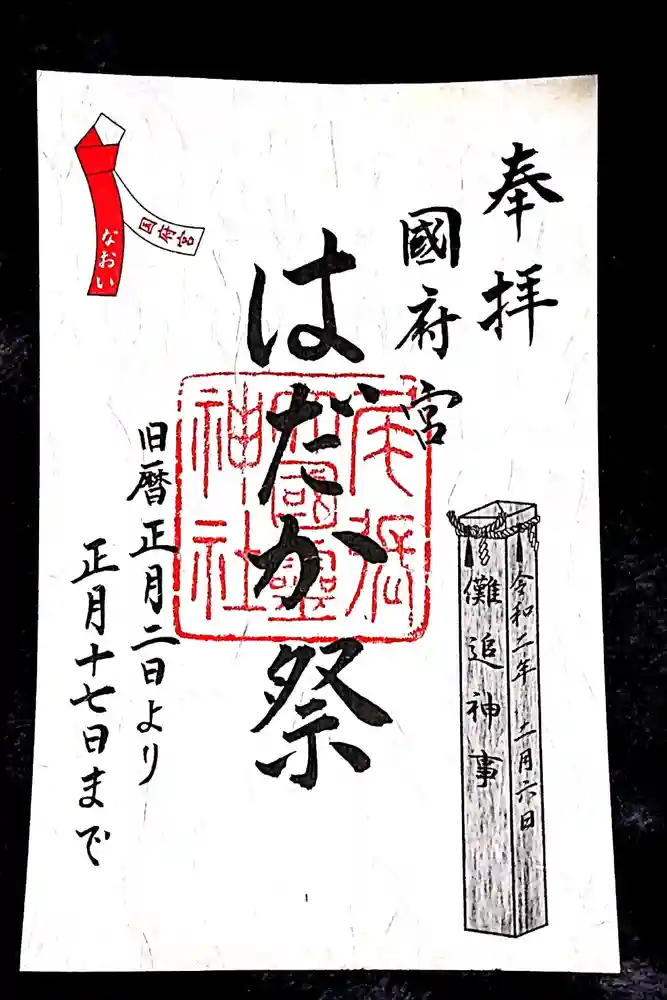 奉拝
國府宮
はだか祭
尾張
大國霊
神社
旧暦正月二日より
正月十七日まで
令和二年 二月六日
儺追神事
国府宮
なおい